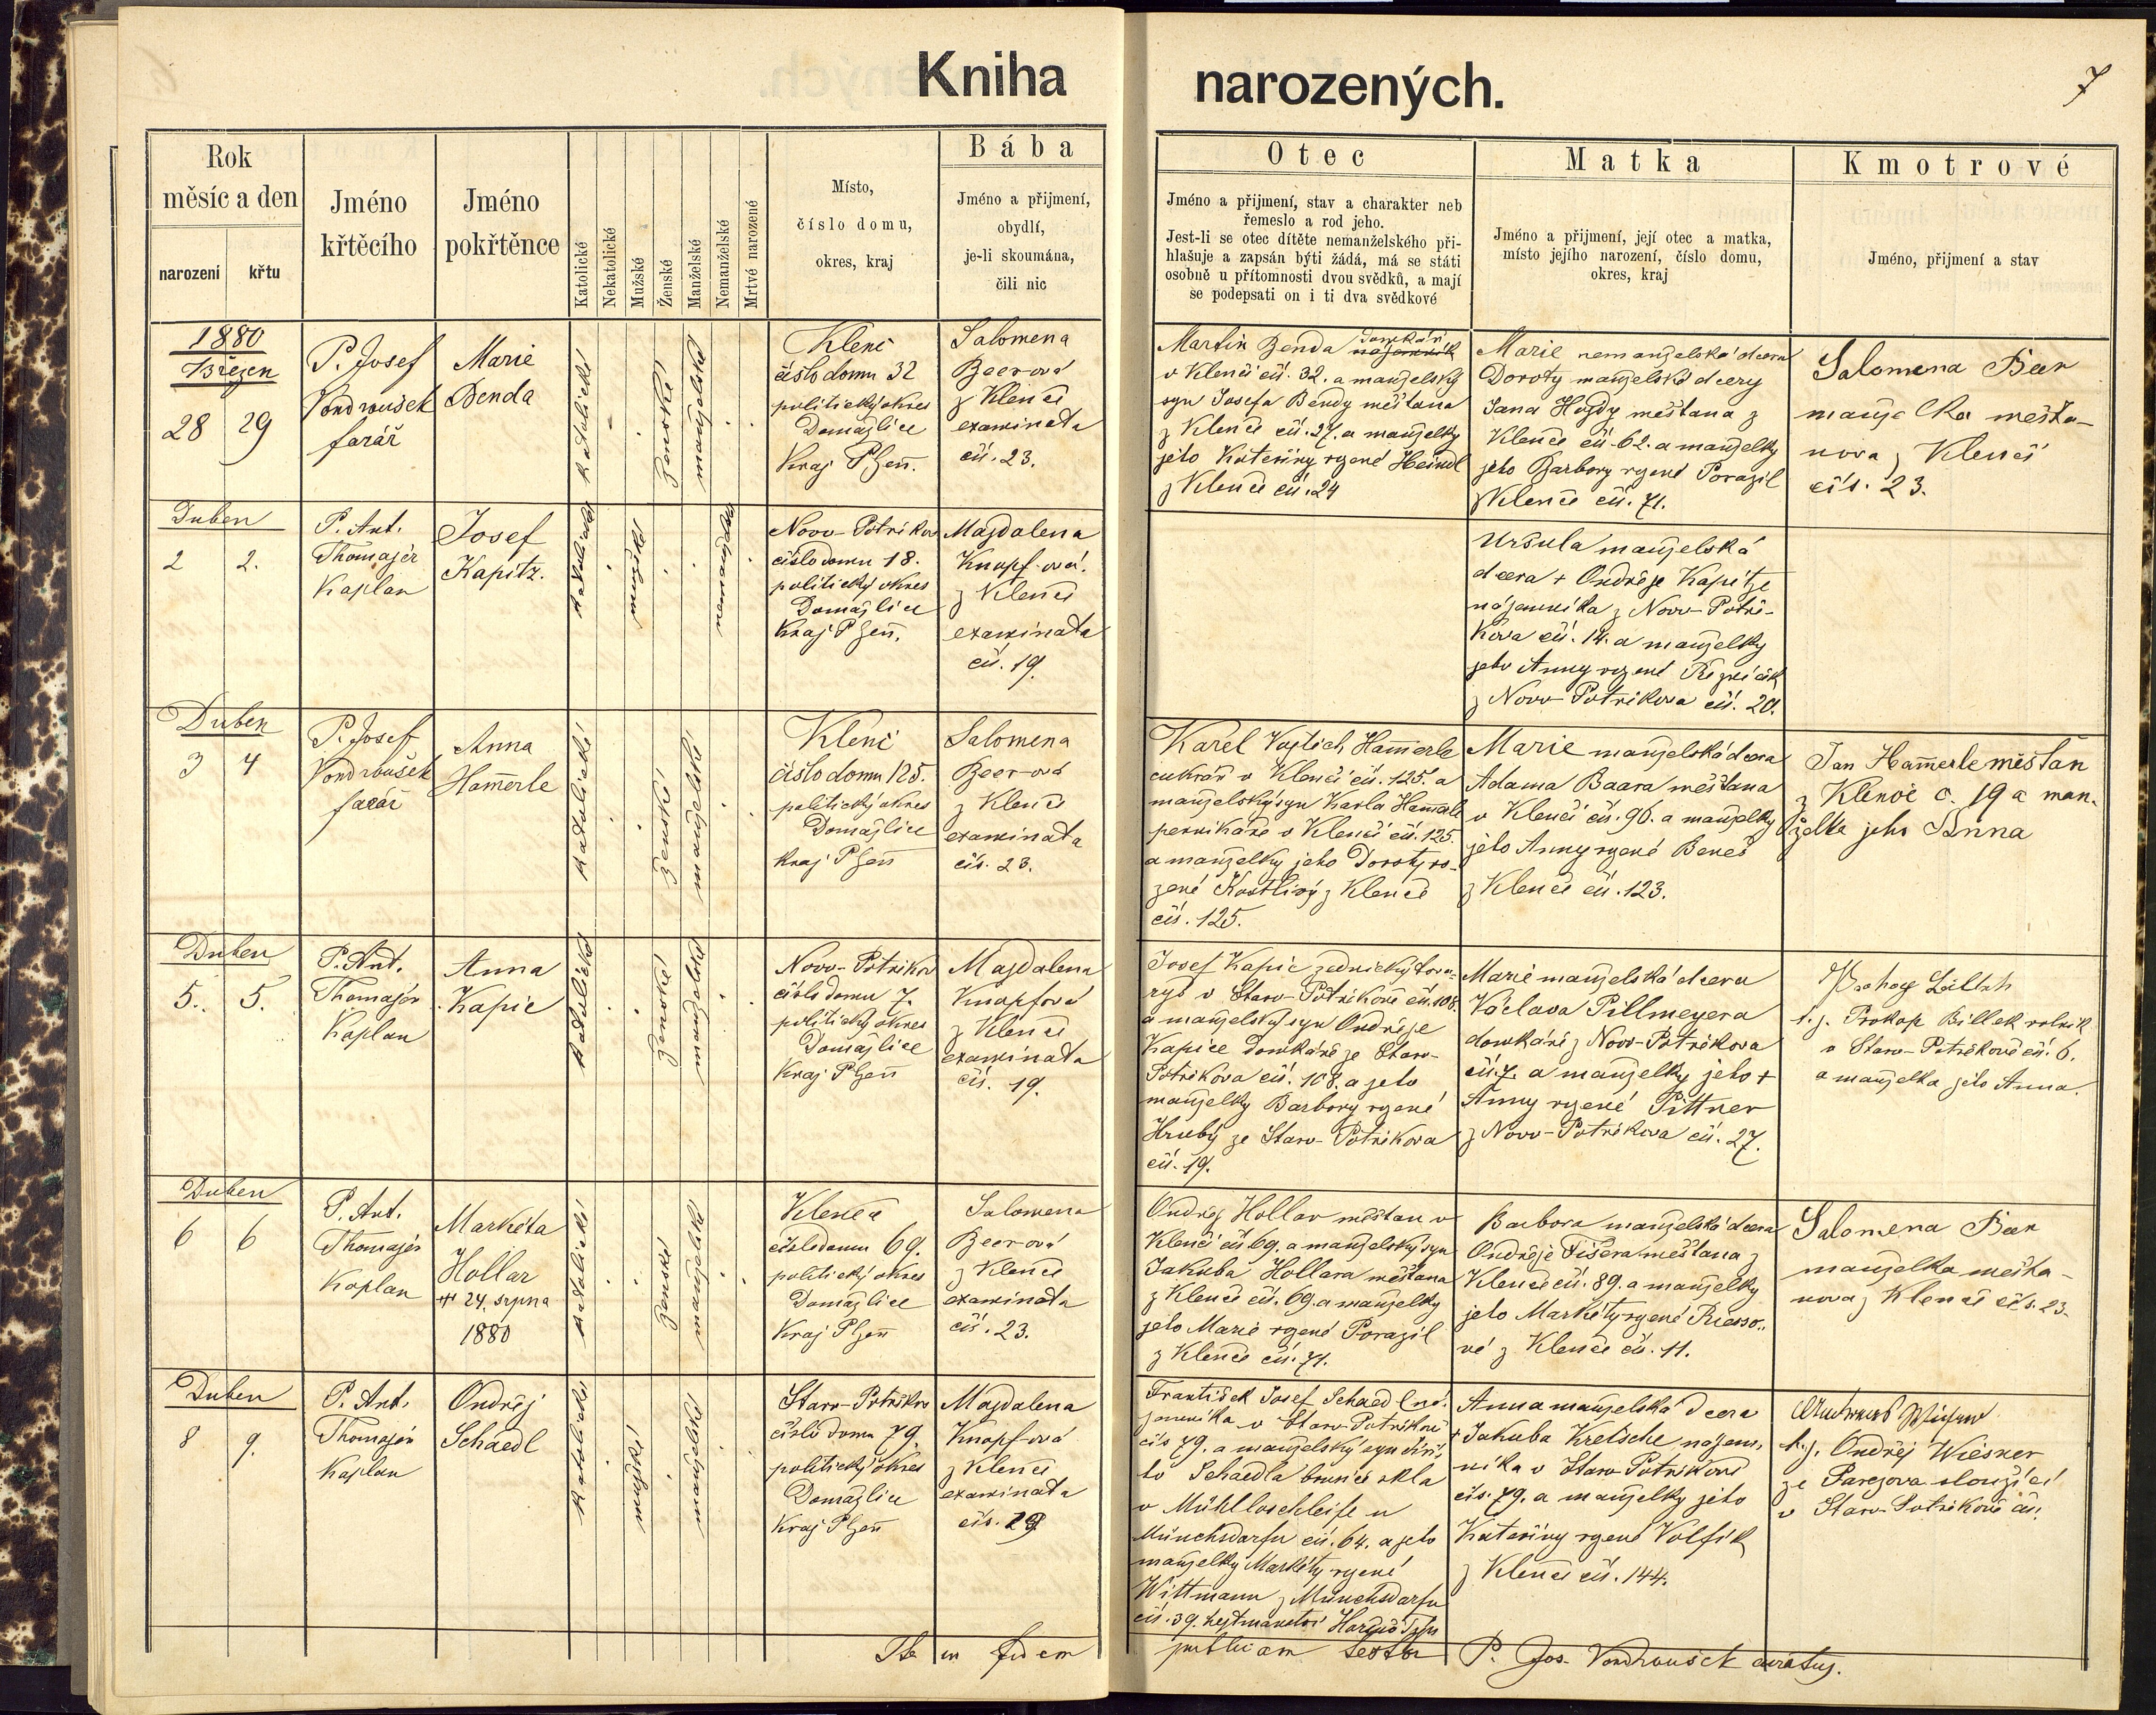 Kniha narozených.
7
Rok
měsíc a den
narození
křtu
Jméno
křtěcího
Jméno
pokřtěnce
Katolické
Nekatolické
Mužské
Ženské
Manželské
Nemanželské
Mrtvé narozené
Místo,
číslo domu,
okres, kraj
Bába
Jméno a přijmení,
obydlí,
je-li skoumána,
čili nic
Otec
Jméno a přijmení, stav a charakter neb
řemeslo a rod jeho.
Jest-li se otec dítěte nemanželského při-
hlašuje a zapsán býti žádá, má se státi
osobně u přítomnosti dvou svědků, a mají
se podepsati on i ti dva svědkové
Matka
Jméno a přijmení, její otec a matka,
místo jejího narození, číslo domu,
okres, kraj
Kmotrové
Jméno, přijmení a stav
1880
Březen
28 29
P. Josef
Vondroušek
farář
Marie
Benda
katolické
ženské
manželské
Klenč
číslo domu 32
politický okres
Domažlice
Kraj Plzeň.
Salomena
Beerová
z Klenče
examinata
čís. 23.
Martin Benda domkář
v Klenčí čís. 32. a manželský
syn Josefa Bendy měštana
z Klenče čís. 27. a manželky
jeho Kateřiny rozené Heindl
z Klenče čís. 24
Marie nemanželská dcera
Doroty manželské dcery
Jana Hojdy měštana z
Klenče čís. 62. a manželky
jeho Barbory rozené Porazil
z Klenče čís. 71.
Salomena Beer
manželka mešťa-
nova z Klenčí
čís. 23.
Duben
2 2.
P. Ant.
Thomajer
Kaplan
Josef
Kapitz.
katolické
mužské
nemanželské
Novo-Potřikov
číslo domu 18.
politický okres
Domažlice
Kraj Plzeň.
Majdalena
Knopf-ová.
z Klenče
examinata
čís. 19.
Uršula manželská
dcera + Ondřeje Kapitze
nájemníka z Novo-Potři-
kova čís. 14. a manželky
jeho Anny rozené
z Novo-Potřikova čís. 20.
Duben
3 4
P. Josef
Vondroušek
farář
Anna
Ham̄erle
katolické
ženské
manželské
Klenč
číslo domu 125.
politický okres
Domažlice
Kraj Plzeň
Salomena
Beer-ová
z Klenče
examinata
čís. 23.
Karel Vojtěch Ham̄erle
cukrář v Klenčí čís. 125. a
manželský syn Karla Ham̄erle
perníkáře v Klenčí čís. 125
a manželky jeho Doroty ro-
zené Kostlivý z Klenče
čís. 125.
Marie manželská dcera
Adama Baara měštana
v Klenčí čís. 96. a manželky
jeho Anny rozené Beneš
z Klenče čís. 123.
Jan Ham̄erle měšťan
z Klenče č. 19 a man-
želka jeho Anna
Duben
5. 5.
P. Ant.
Thomajer
Kaplan
Anna
Kapic
katolické
ženské
manželské
Novo-Potřikov
číslo domu 7.
politický okres
Domažlice
Kraj Plzeň
Majdalena
Knopfová
z Klenče
examinata
čís. 19.
Josef Kapic zednický tova-
ryš v Staro-Potřikově čís. 108.
a manželský syn Ondřeje
Kapice domkáře ze Staro-
Potřikova čís. 108. a jeho
manželky Barbory rozené
Hrubý ze Staro-Potřikova
čís. 19.
Marie manželská dcera
Václava Pillmeyera
domkáře z Novo-Potřikova
čís. 7. a manželky jeho +
Anny rozené Pittner
z Novo-Potřikova čís. 27.
t. j. Prokop Billek rolník
v Staro-Potřikově čís. 6.
a manželka jeho Anna.
Duben
6 6
P. Ant.
Thomajer
Kaplan
Markéta
Hollar
24. srpna
1880
katolické
ženské
manželské
Klenče
číslo domu 69.
politický okres
Domažlice
Kraj Plzeň
Salomena
Beerová
z Klenče
examinata
čís. 23.
Ondřej Hollar měštan v
Klenčí čís. 69. a manželský syn
Jakuba Hollara měštana
z Klenče čís. 69. a manželky
jeho Marie rozené Porazil
z Klenče čís. 71.
Barbora manželská dcera
Ondřeje Fišera měštana z
Klenče čís. 89. a manželky
jeho Markéty rozené Riesso-
vé z Klenče čís. 11.
Salomena Beer
manželka mešťa-
nova z Klenče čís. 23.
Duben
8 9.
P. Ant.
Thomajer
Kaplan
Ondřej
Schaedl
katolické
mužské
manželské
Staro-Potřikov
číslo domu 79.
politický okres
Domažlice
Kraj Plzeň
Majdalena
Knopf-ová
z Klenče
examinata
čís. 19
František Josef Schaedl ná-
jemníka v Staro-Potřikově
čís 79. a manželský syn
Schaedla brusiče skla
v Mühlloschleife u
Münchsdorfu čís. 64. a jeho
manželky Markéty rozené
Wittmann z Münchsdorfu
čís. 39. hejtmanství
Anna manželská dcera
+ Jakuba Kretsche nájem-
níka v Staro-Potřikově
čís. 79. a manželky jeho
Kateřiny rozené Volfík
z Klenče čís. 144.
t. j. Ondřej Wiesner
ze Parezova sloužící
v Staro-Potřikově čís.
in fidem
publicam testor P. Jos. Vondroušek curatus.